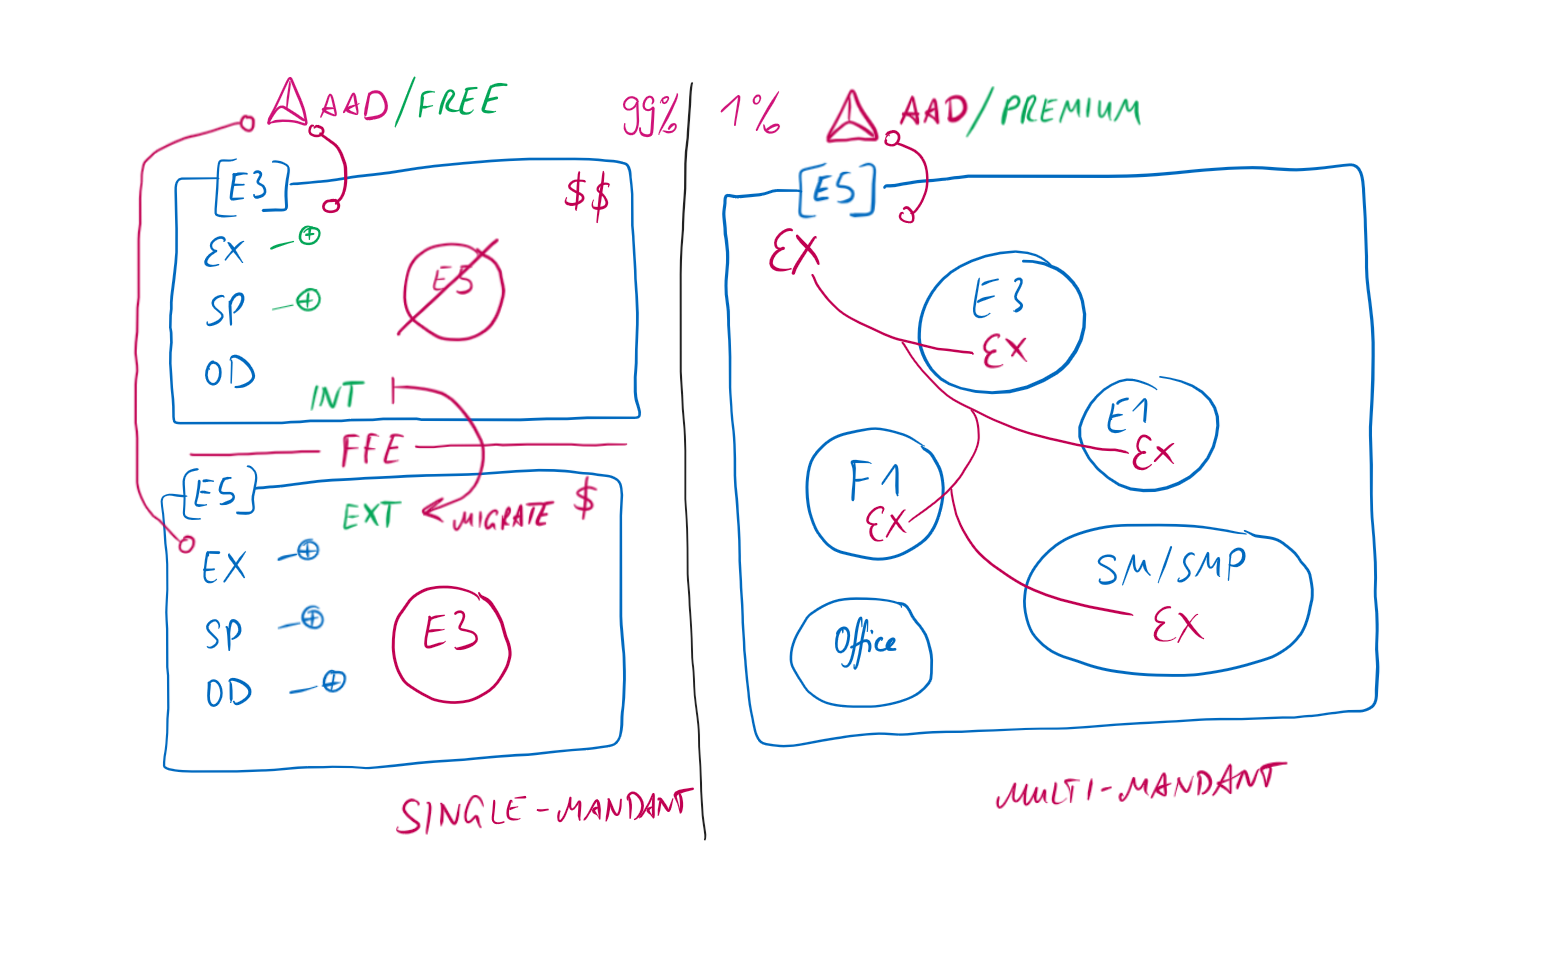 AAD/FREE
99%
[E3]
$$
EX
SP
OD
E5
INT
FFE
[E5]
EXT
MIGRATE
$
EX
SP
OD
E3
SINGLE-MANDANT
1%
AAD/PREMIUM
[E5]
EX
E3
EX
E1
EX
F1
EX
SM/SMP
EX
Office
MULTI-MANDANT